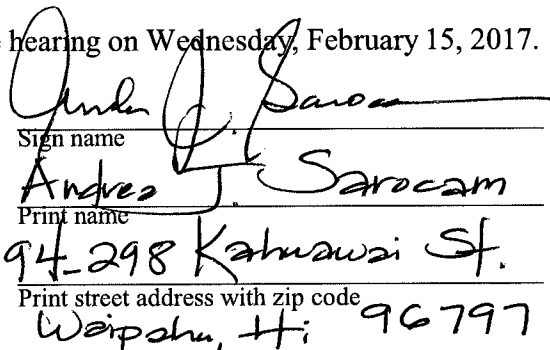 hearing on Wednesday, February 15, 2017.
Andrea J. Saroca
Sign name
Andrea J. Sarocam
Print name
94-298 Kahuawai St.
Print street address with zip code
Waipahu, Hi 96797